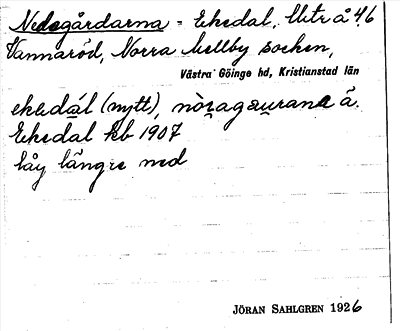 Nedagårdarna = Ekedal, Utr å 4,6
Vannaröd, Norra Mellby socken,
Västra Göinge hd, Kristianstad län
ekedál (nytt), å.
Ekedal kb 1907
låg längre ned
JÖRAN SAHLGREN 1926